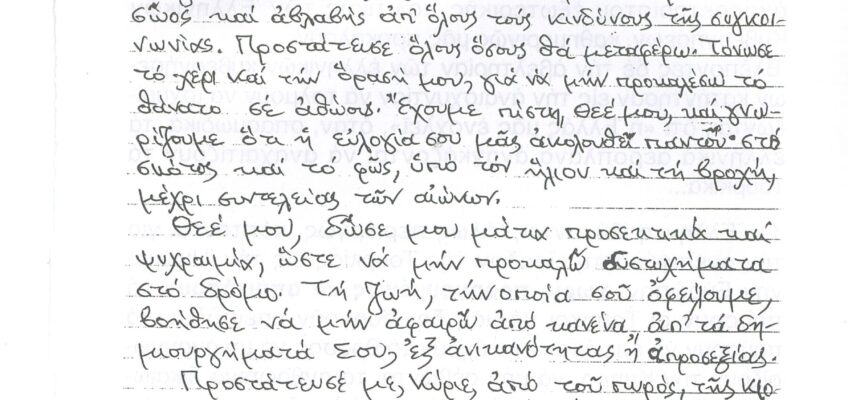 σῶος καί ἀβλαβής ἀπ' ὅλους τούς κινδύνους τῆς συγκοι-
νωνίας. Προστάτευσε ὅλους ὅσους θά μεταφέρω. Τόνωσε
τό χέρι καί τήν ὅρασή μου, γιά νά μήν προκαλέσω τό
θάνατο σέ ἀθώους. Ἔχουμε πίστη, Θεέ μου, καί γνω-
ρίζουμε ὅτι ἡ εὐλογία σου μᾶς ἀκολουθεῖ παντοῦ· στό
σκότος καί τό φῶς, ὑπό τόν ἥλιον καί τή βροχή,
μέχρι συντελείας τῶν αἰώνων.
Θεέ μου, δῶσε μου μάτια προσεκτικά καί
ψυχραιμία, ὥστε νά μήν προκαλῶ δυστυχήματα
στό δρόμο. Τή ζωή, τήν ὁποία σοῦ ὀφείλουμε,
βοήθησε νά μήν ἀφαιρῶ ἀπό κανένα ἀπ' τά δη-
μιουργήματά Σου, ἐξ ἀνικανότητας ἤ ἀπροσεξίας.
Προστάτευσέ με, Κύριε, ἀπό τοῦ πυρός, τῆς